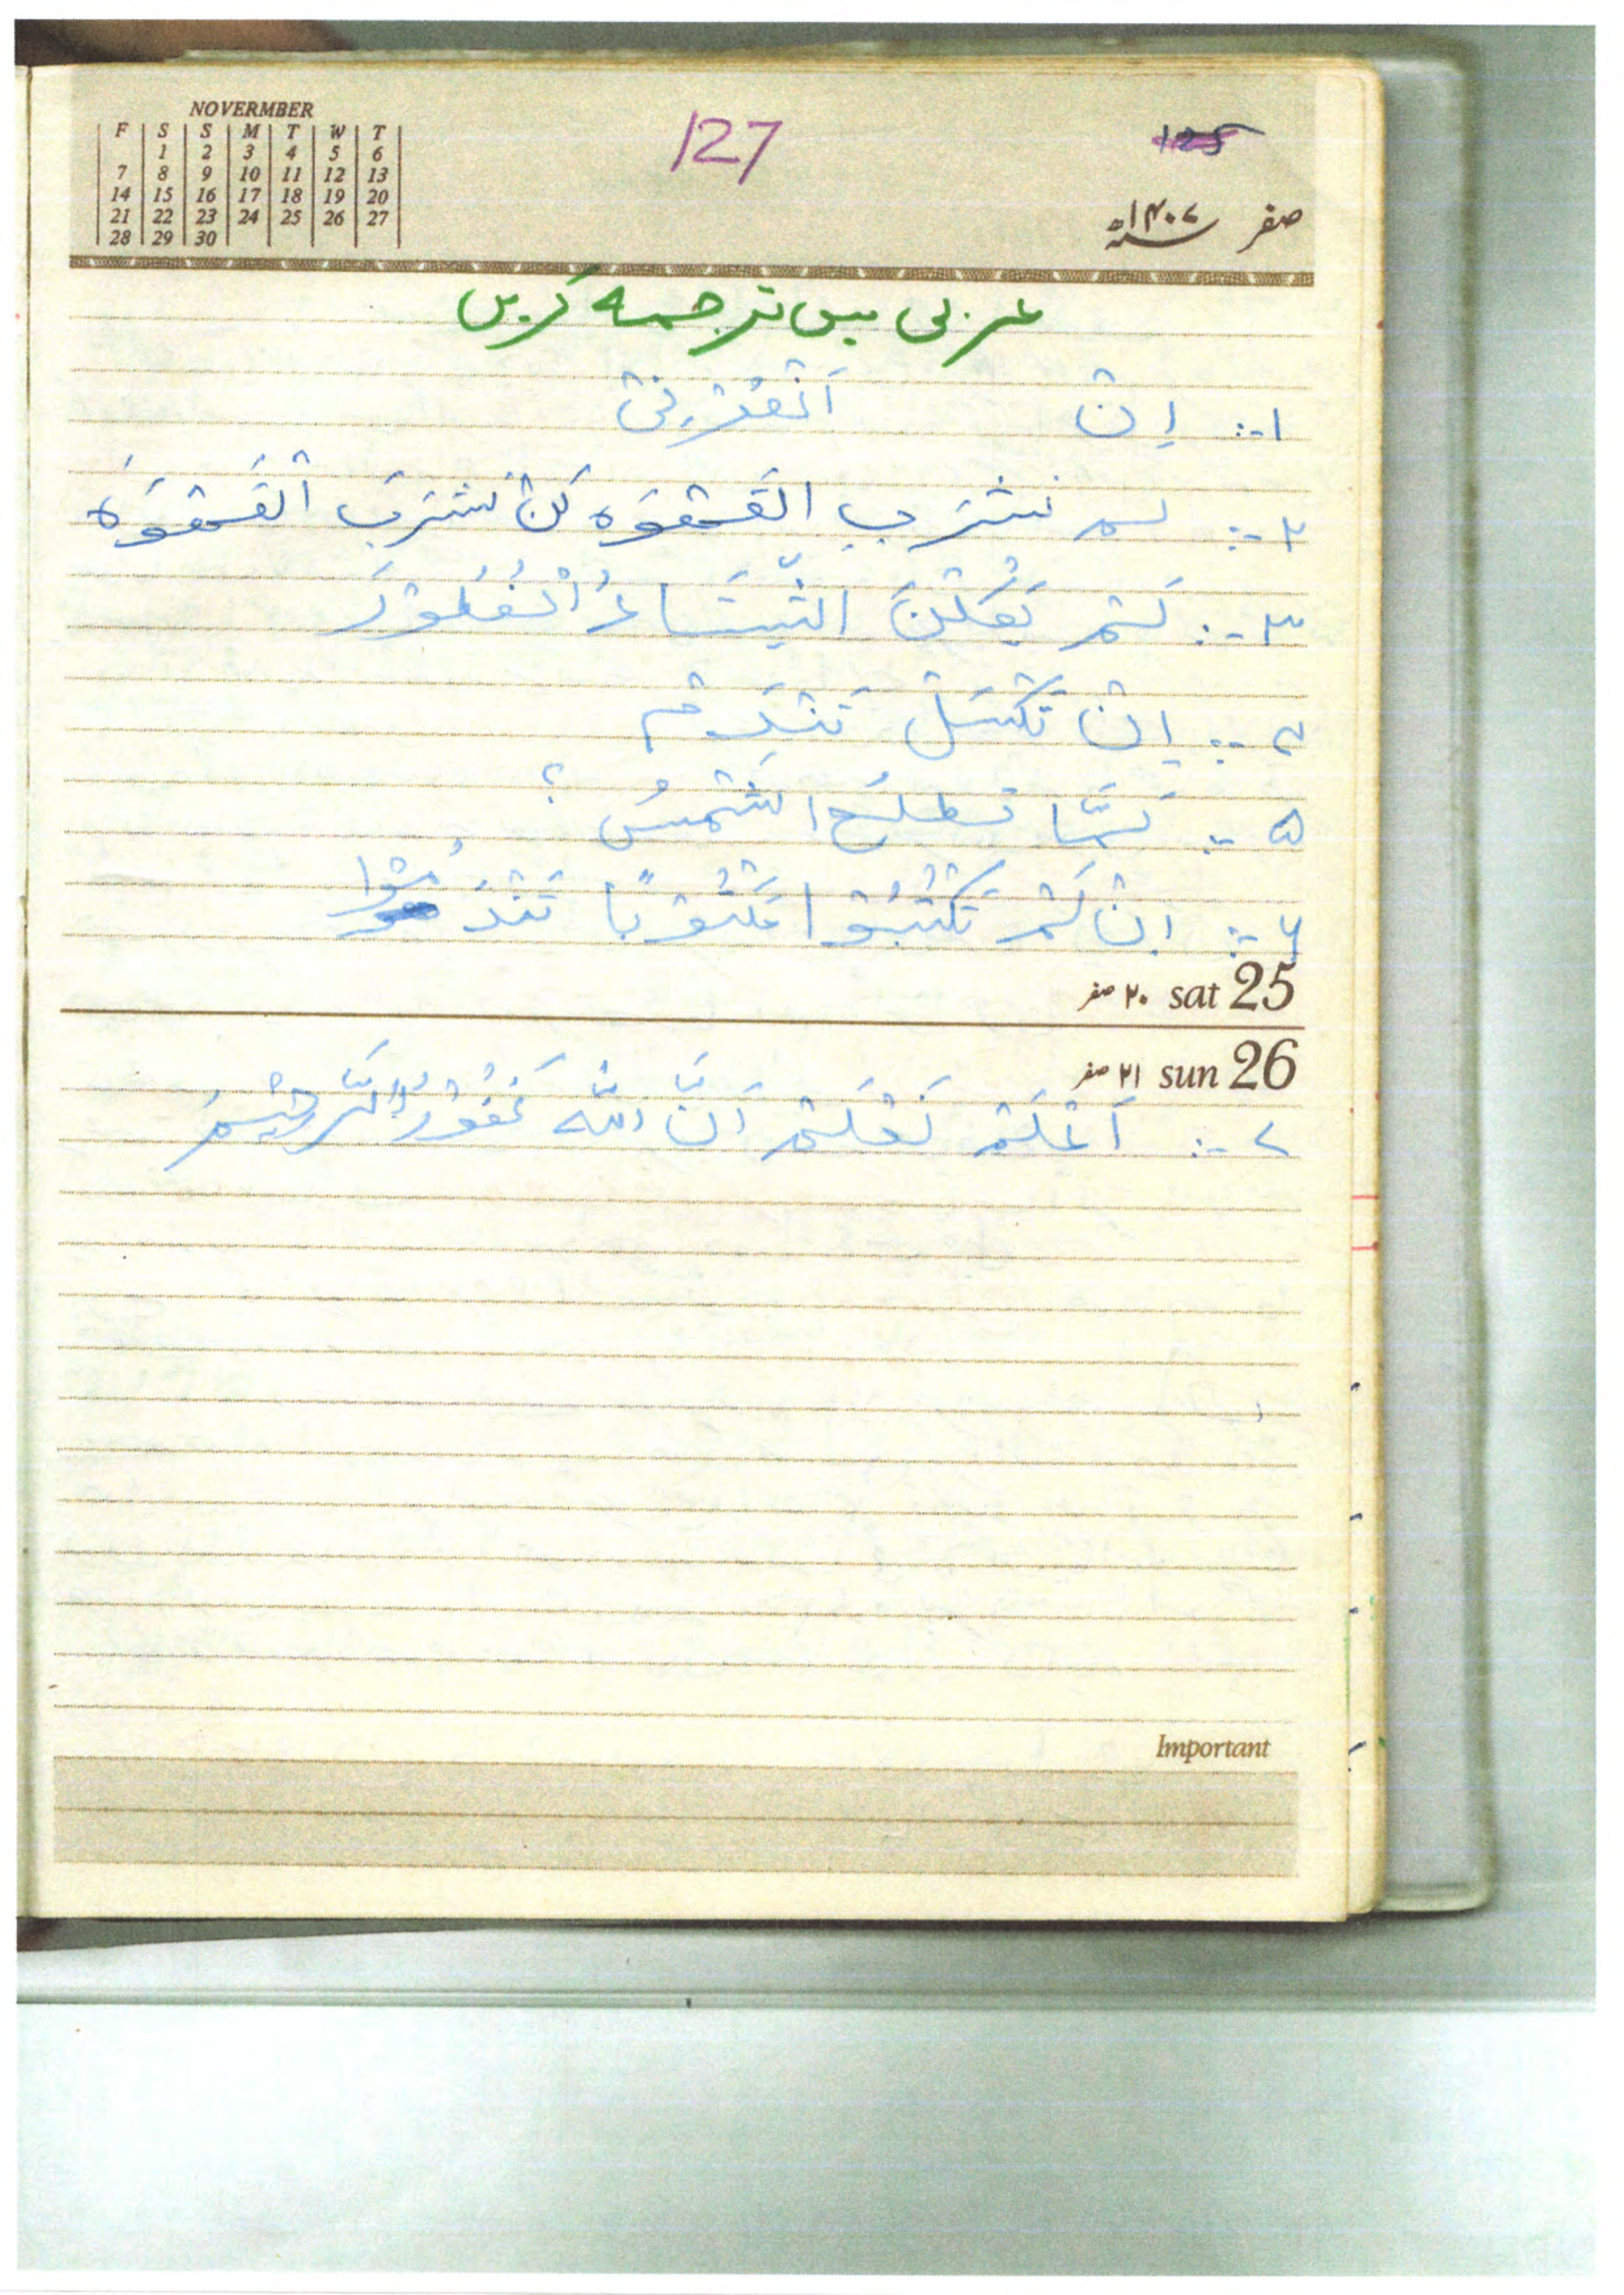 NOVERMBER
F S S M T W T
1 2 3 4 5 6
7 8 9 10 11 12 13
14 15 16 17 18 19 20
21 22 23 24 25 26 27
28 29 30
127
125
صفر ۱۴۰۷ھ
عربی میں ترجمہ کریں
۱:- اِن
۲:- لم نشرب القَهْوَه لَنْ نشرَبَ القَهْوَه
۳:- لَمْ يَقُلْنَ النِّسَاءُ
۴:- اِنْ تَكْسَلْ تَنْدَمْ
۵:- لَمَّا تطلع الشَّمْسُ؟
۶:- اِنْ لَمْ تَكْتُبُوْا مَكْتُوْبًا تَنْدَمُوْا
25 sat ۲۰ صفر
26 sun ۲۱ صفر
۷:- اَلَمْ نَعْلَمْ اَنَّ اللّٰهَ غَفُوْرُ الرَّحِيْمُ
Important